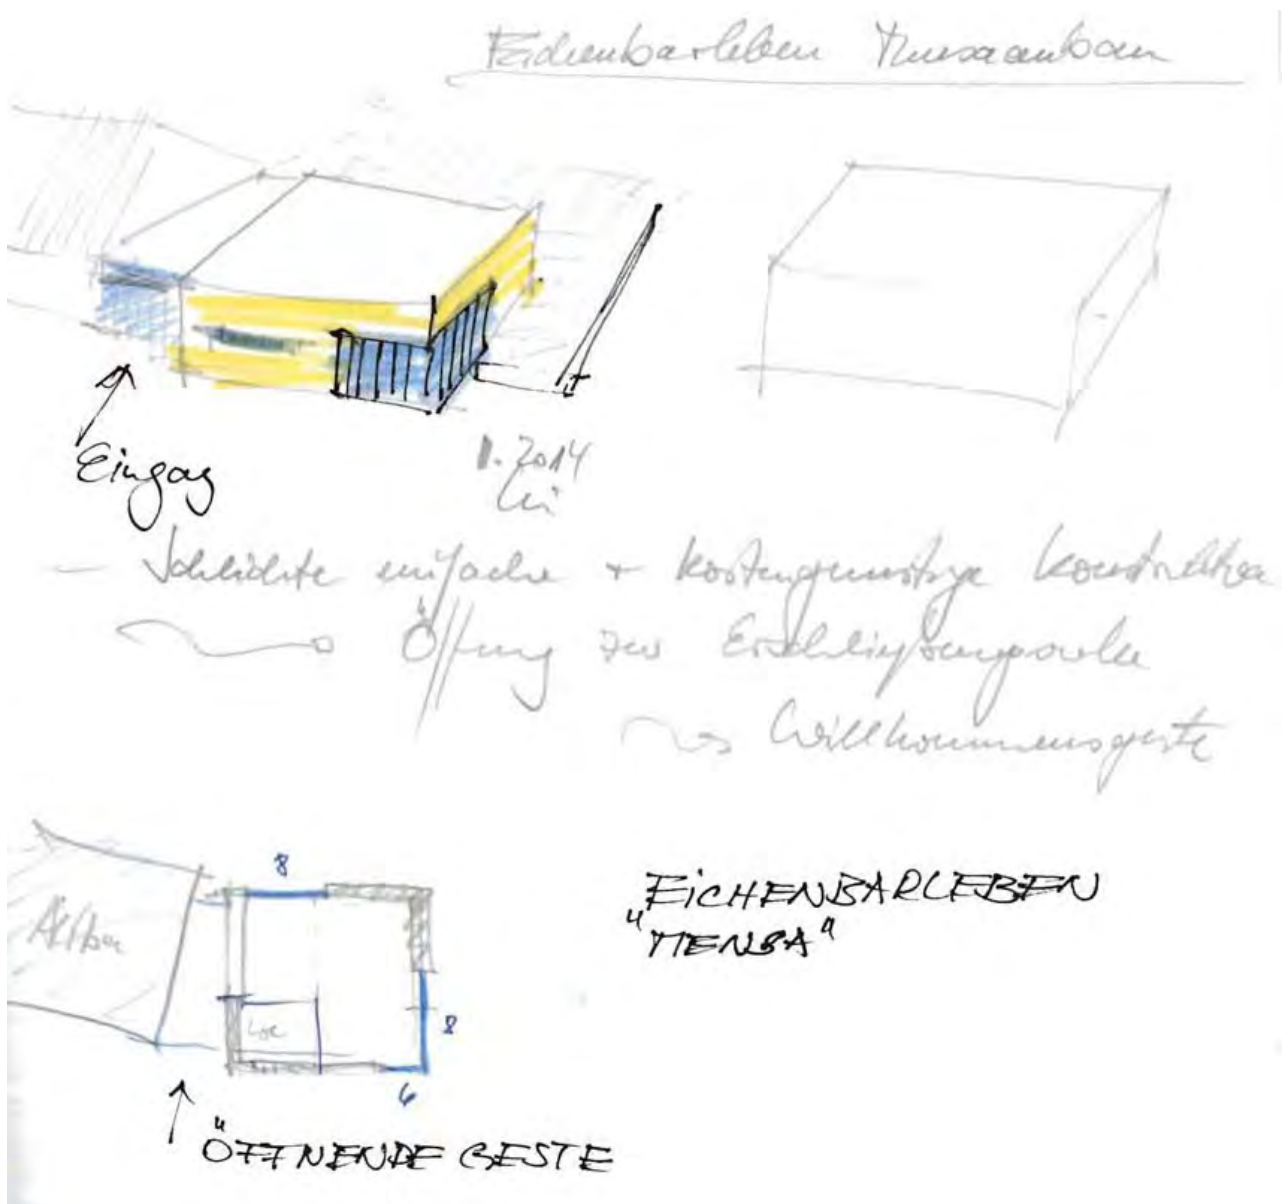 Eichenbarleben Mensaanbau
Eingag
1.2014
- Schlichte einfache + kostengünstige Konstruktion
Öffnung zur Erschließungsseite
Willkommensgeste
8
Altbau
EICHENBARLEBEN
"MENSA"
8
6
ÖFFNENDE GESTE